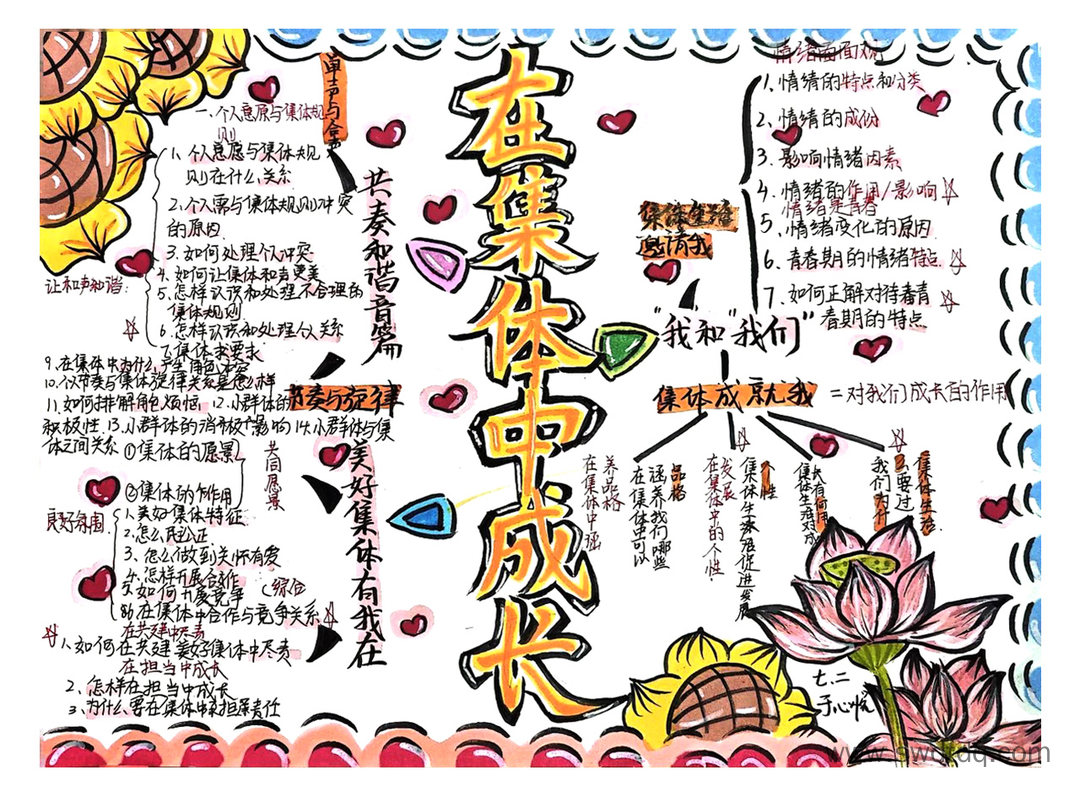 在集体中成长
单声与合声
一、个人意愿与集体规
则
1、个人意愿与集体规
则在什么关系
2.个人需与集体规则冲突
的原因
3.如何处理个人冲突
4.如何让集体和声更美
5.怎样认识和处理不合理的
集体规则
6.怎样认识和处理个人关系
7.集体 我要求
让和声和谐:
共奏和谐音篇
节奏与旋律
9.在集体中为什么产生角色冲突
10.个人节奏与集体旋律关系是怎么样
11.如何排解角色烦恼 12.小群体的
积极性.13.小群体的消极影响 14.小群体与集
体之间关系
①集体的愿景
②集体的作用
共同愿景
良好氛围
1.美好集体特征
2.怎么民主公正
3.怎么做到关怀有爱
4.怎样开展合作
5.如何开展竞争
(综合
在集体中合作与竞争关系
美好集体有我在
在共建中尽责
1.如何在共建美好集体中尽责
在担当中成长
2、怎样在担当中成长
3.为什么要在集体中承担责任
情绪面面观
1.情绪的特点和分类
2.情绪的成份
3.影响情绪因素
4.情绪的作用/影响
情绪是青春
5.情绪变化的原因
6.青春期的情绪特点
7.如何正解对待春青
春期的特点
集体生活
邀请我
"我和"我们"
集体成就我
=对我们成长的作用
在集体中涵
养品格
品格
涵养我们哪些
在集体中可以
发展
在集体中的个性.
个性
集体生活促进发展
共有何用
集体生活对成
我们为什
么要过
集体生活
七.二
于心悦
www.swdrdq.com